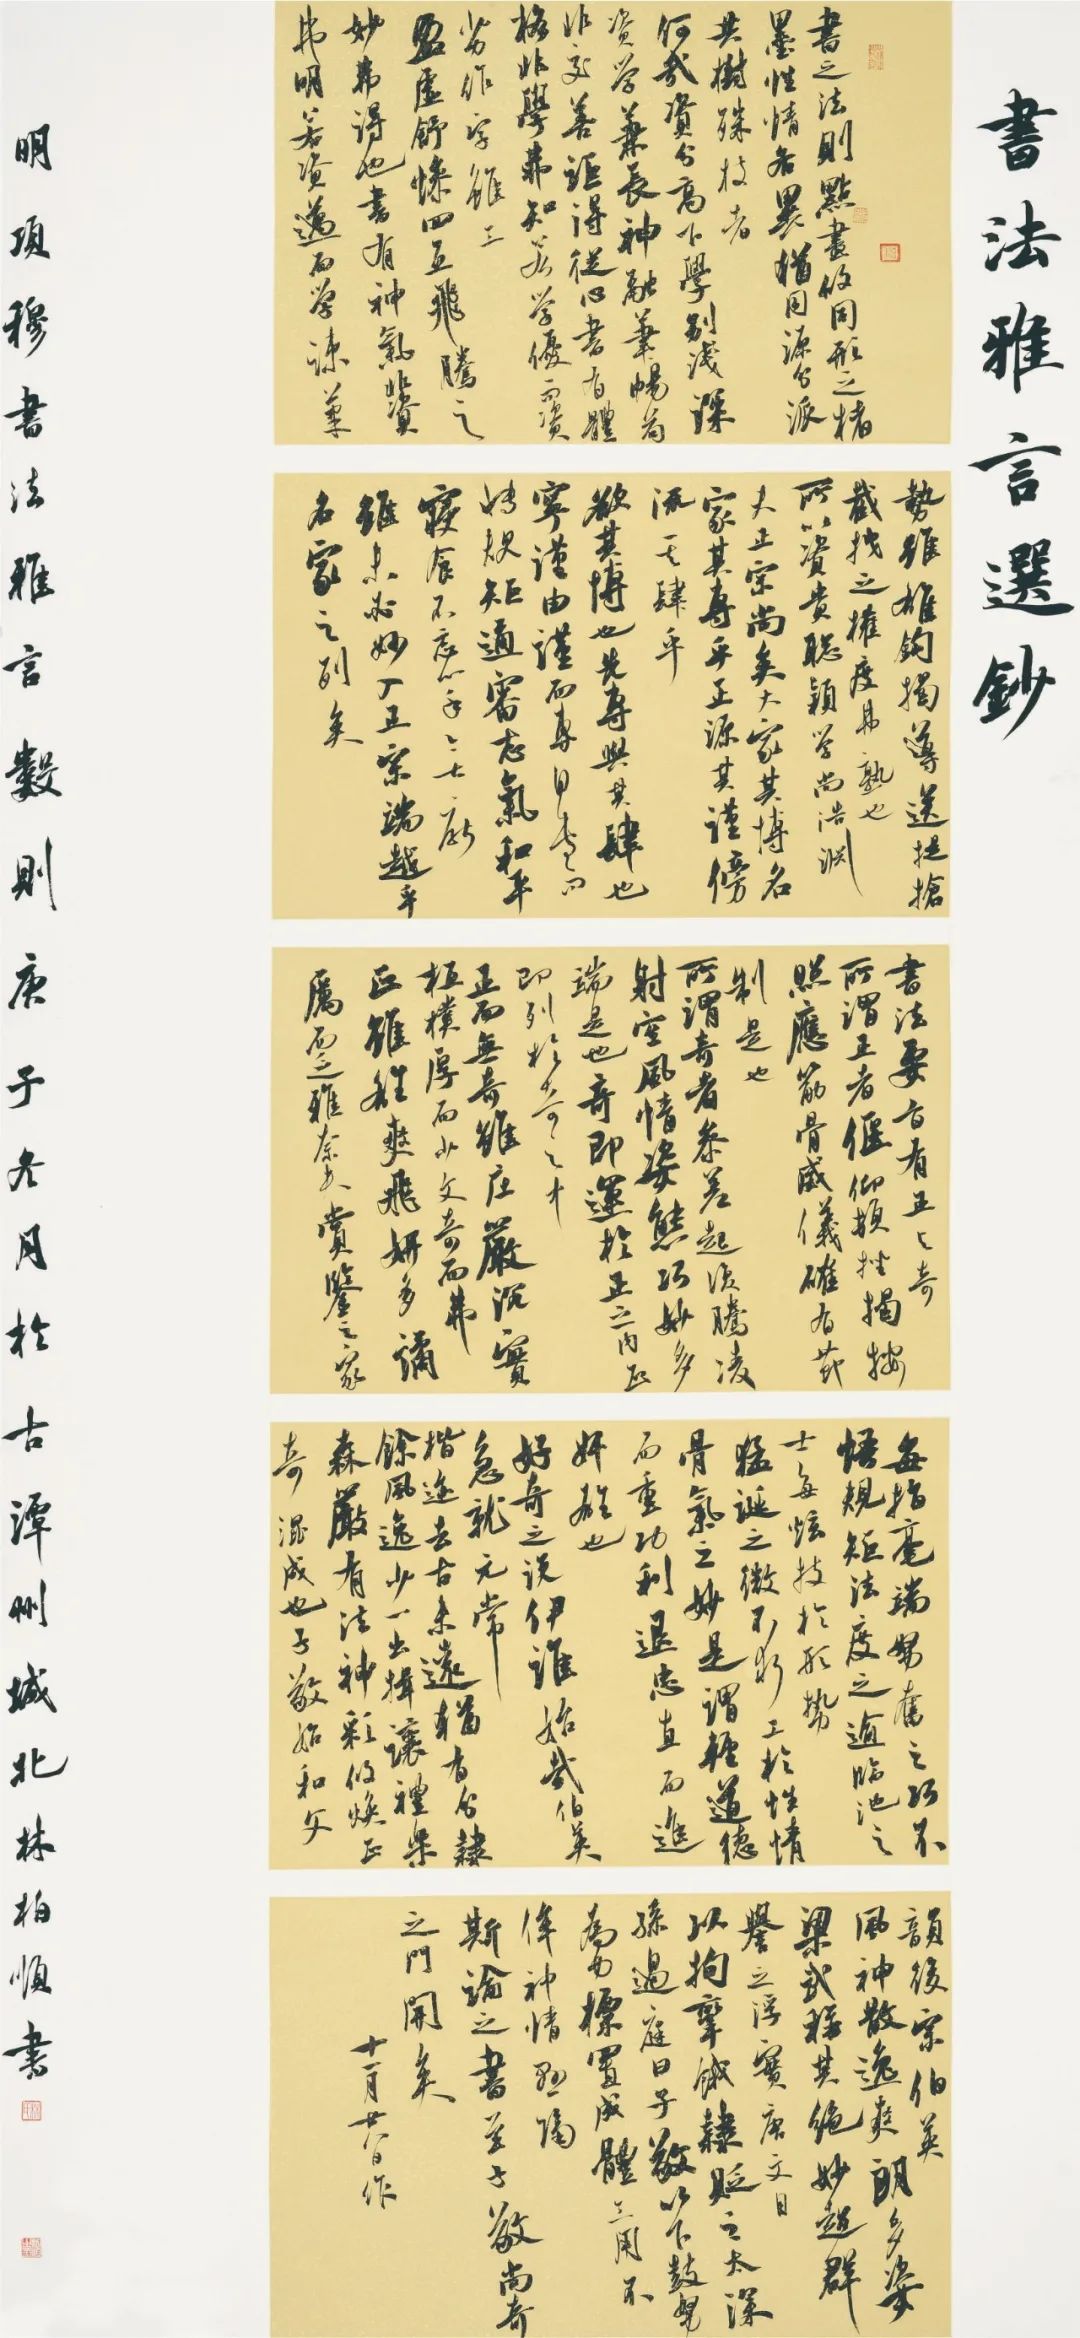 書法雅言選鈔
書之法則點畫攸同形之楮
墨性情各異猶同源分派
共樹殊枝者
何哉資分高下學別淺深
資學兼長神融筆暢苟
非交善詎得從心書有體
格非學弗知若學優而資
劣作字雖工
盈虛舒慘回互飛騰之
妙弗得也書有神氣非資
弗明若資邁而學疎筆
勢雖雄鉤揭導送提搶
截拽之權度弗熟也
所以資貴聰穎學尚浩淵
大正宗尚矣大家其博名
家其專乎正源其謹傍
流其肆乎
欲其博也先專與其肆也
寧謹由謹而專自專而
博規矩通審志氣和平
寢食不忘心手之士厭
雖未必妙入正宗端越乎
名家之列矣
書法要旨有正與奇
所謂正者偃仰頓挫揭按
照應筋骨威儀確有節
制是也
所謂奇者參差起復騰凌
射空風情姿態巧妙多
端是也奇即運於正之內正
即列於奇之中
正而無奇雖莊嚴沉實
恒樸厚而少文奇而弗
正雖雄爽飛妍多譎
厲而乏雅奈夫賞鑒之家
每指毫端努奮之巧不
悟規矩法度之逾臨池之
士每炫技於形勢
猛誕之微不求工於性情
骨氣之妙是謂輕道德
而重功利退忠直而進
奸雄也
好奇之說伊誰始哉伯英
急就元常
楷迹去古未遠猶有分隸
餘風逸少一出揖讓禮樂
森嚴有法神彩攸煥正
奇混成也子敬始和父
韻後宗伯英
風神散逸爽朗多姿
梁武稱其絕妙超群
譽之浮實唐文目
以拘摯餓隸貶之太深
孫過庭曰子敬以下鼓努
為力標置成體工用不
侔神情懸隔
斯論之書至子敬尚奇
之門開矣
十一月廿八日作
明項穆書法雅言數則庚子冬月於古潭州城北林柏順書